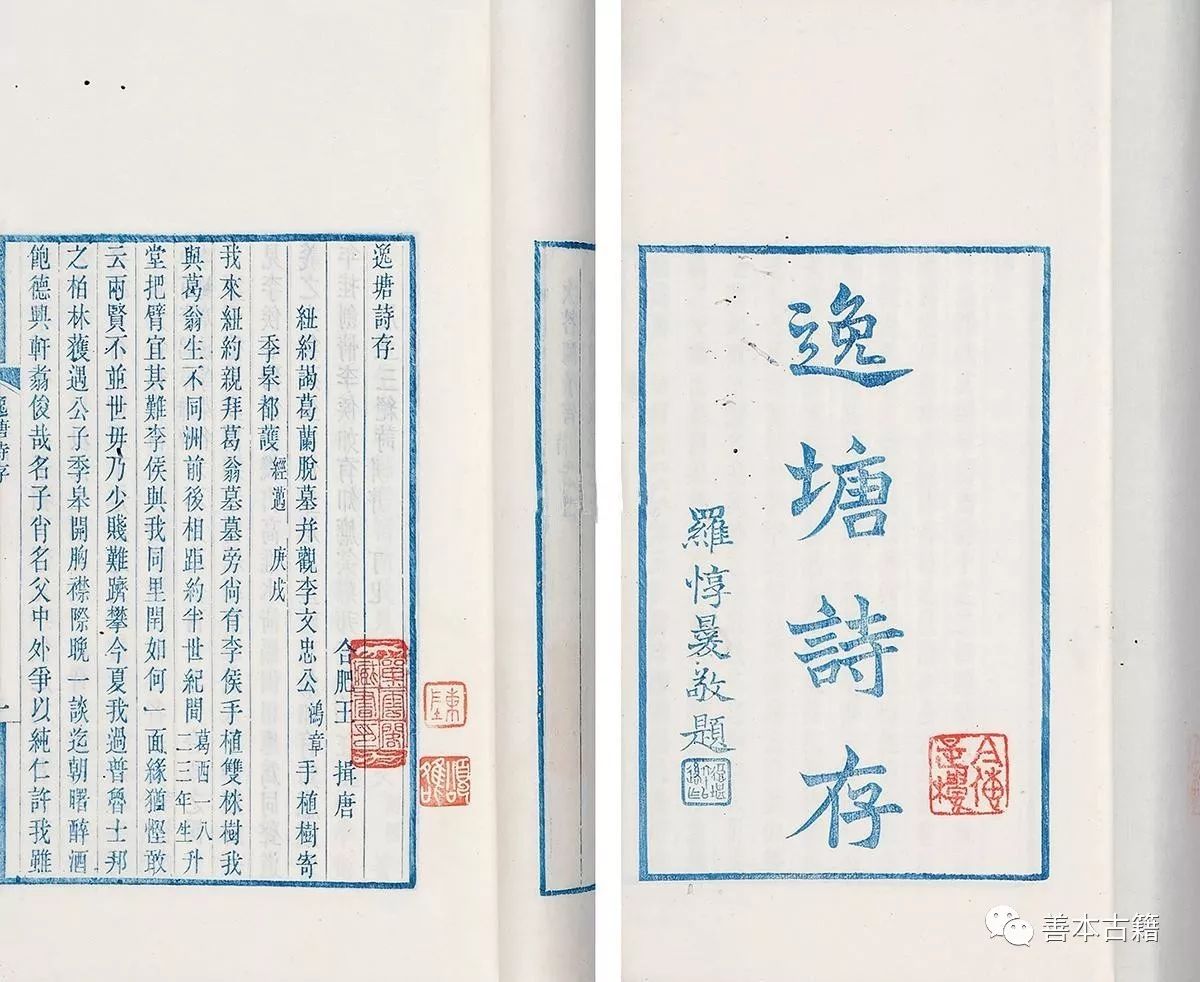 逸塘詩存
羅惇㬊敬題
逸塘詩存
合肥王 揖唐
紐約謁葛蘭脫墓并觀李文忠公鴻章手植樹寄
季皋都護經邁 庚戌
我來紐約親拜葛翁墓墓旁尙有李侯手植雙株樹我
與葛翁生不同洲前後相距約半世紀間葛西一八二三年生升
堂把臂宜其難李侯與我同里閈如何一面緣猶慳敢
云兩賢不並世毋乃少賤難躋攀今夏我過普魯士邦
之柏林蒦遇公子季皋開胸襟際晚一談迄朝曙醉酒
飽德興軒翥俊哉名子肖名父中外爭以純仁許我雖
逸塘詩存
一
善本古籍